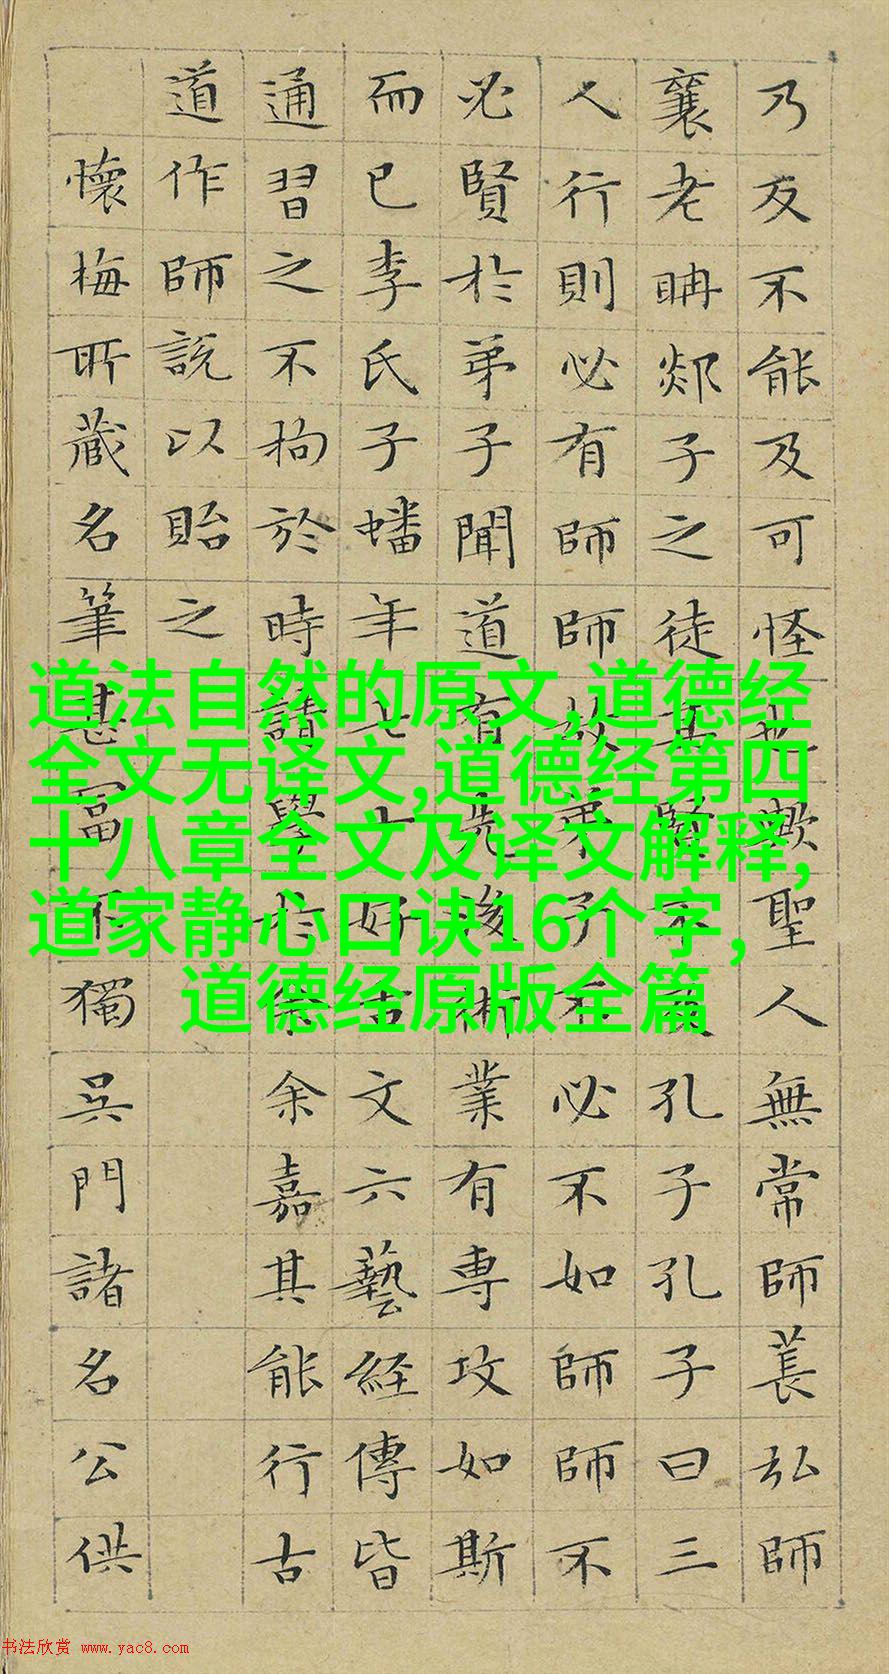 乃反不能及可怪也歟聖人無常師萇弘師
襄老聃郯子之徒其賢不及孔子孔子曰三
人行則必有師師故弟子不必不如師師不
必賢於弟子聞道有先後術業有專攻如斯
而已李氏子蟠年七十好古文六藝經傳皆
通習之不拘於時請學於余余嘉其能行古
道作師說以貽之
懷梅所藏名筆甚富不獨吳門諸名公供
道法自然的原文,道德经
全文无译文,道德经第四
十八章全文及译文解释,
道家静心口诀16个字,
道德经原版全篇
书法欣赏 www.yac8.com